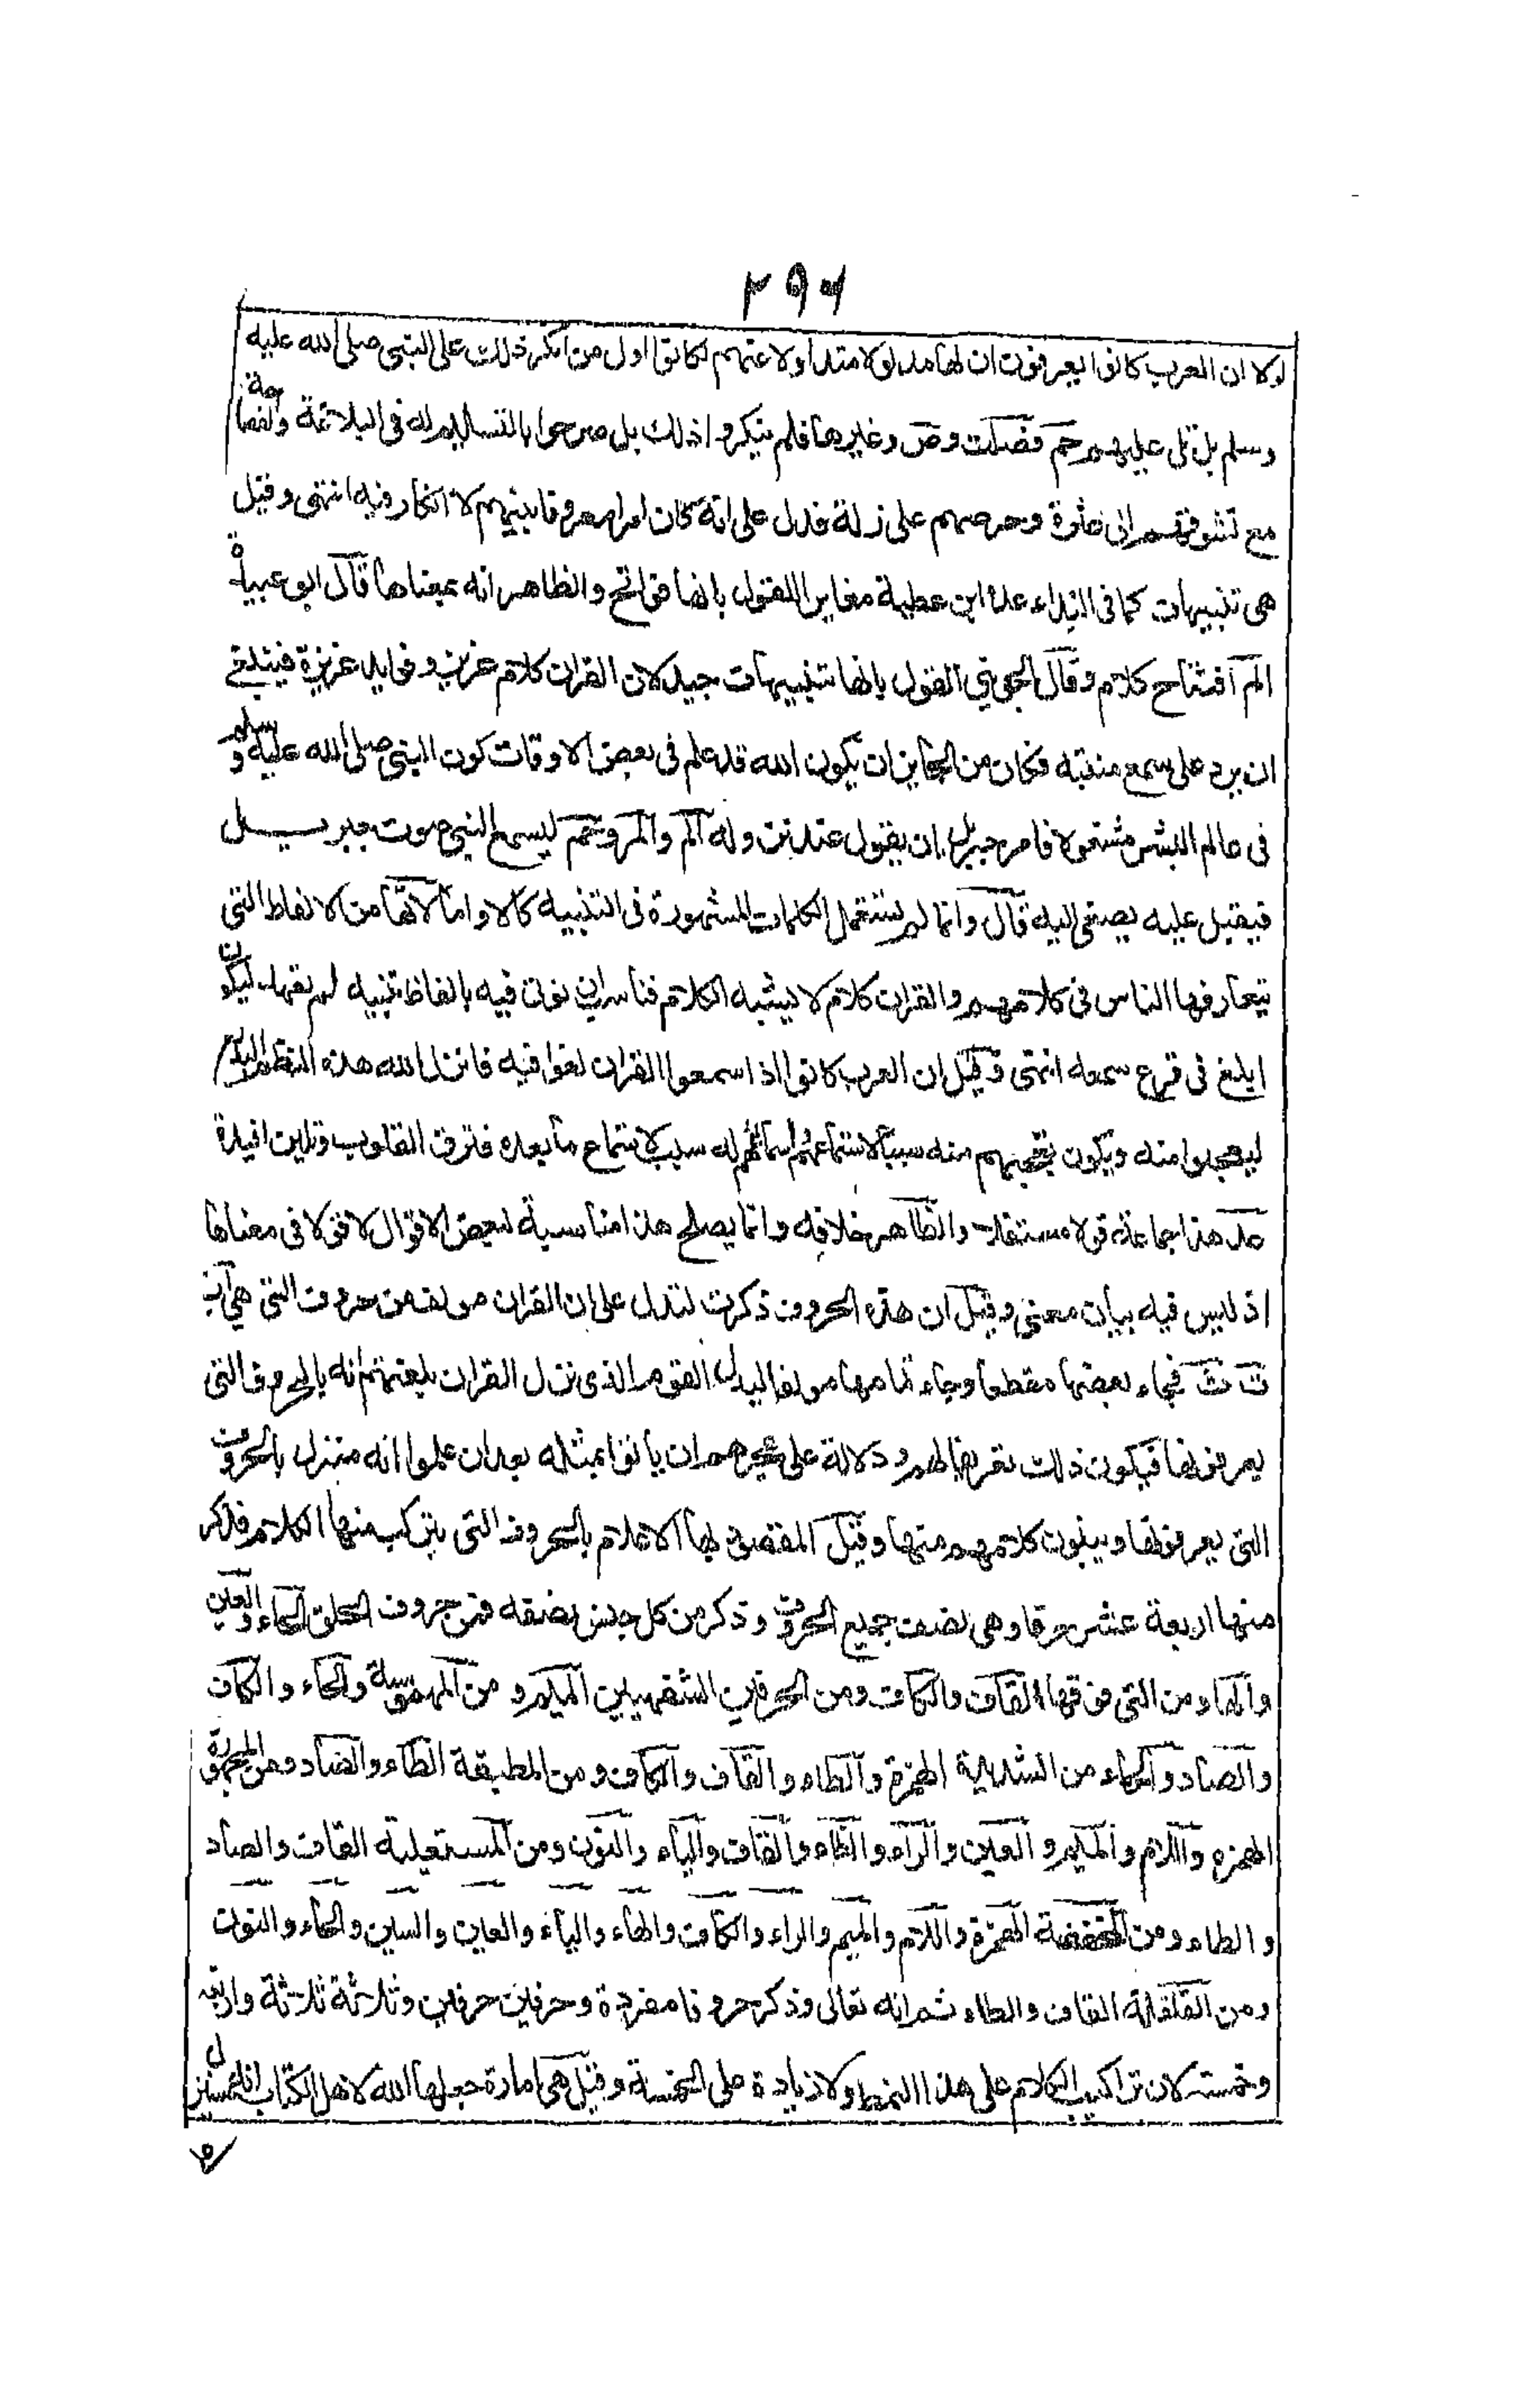 ٢٩٦
لولا ان العرب كانوا يعرفون ان لها مدلولا متداولا عنهم لكانوا اول من انكر ذلك على النبى صلى الله عليه
وسلم بل تلى عليهم حم فصلت وص وغيرها فلم ينكروا ذلك بل صرحوا بالتسليم له فى البلاغة والفصاحة
مع تشوفهم الى عثرة وحرصهم على زلة فدل على انه كان امرا معروفا بينهم لا انكار فيه انتهى وقيل
هى تنبيهات كما فى النداء عده ابن عطية مغايرا للقول بانها فواتح والظاهر انه بمعناها قال ابو عبيدة
الم افتتاح كلام وقال الجوينى القول بانها تنبيهات جيد لان القران كلام عزيز وفوايده عزيزة فينبغى
ان يرد على سمع منتبه فكان من الجايز ان يكون الله قد علم فى بعض الاوقات كون النبى صلى الله عليه وسلم
فى عالم البشر مشغولا فامر جبريل ان يقول عند نزوله الم والمر وحم ليسمع النبى صوت جبريل
فيقبل عليه يصغى اليه قال وانما لم يستعمل الكلمات المشهورة فى التنبيه كالا واما لانها من الالفاظ التى
يتعارفها الناس فى كلامهم والقران كلام لا يشبه الكلام فناسب ان يوتى فيه بالفاظ تنبيه لم تعهد ليكون
ابلغ فى قرع سمعه انتهى وقيل ان العرب كانوا اذا سمعوا القران لغوا فيه فانزل الله هذا النظم البديع
ليعجبوا منه ويكون تعجبهم منه سببا لاستماعهم واستماعهم له سبب لاستماع ما بعده فترق القلوب وتلين افيدة
عد هذا جماعة قولا مستقلا والظاهر خلافه وانما يصلح هذا مناسبة لبعض الاقوال لا قولا فى معناها
اذ ليس فيه بيان معنى وقيل ان هذه الحروف ذكرت لتدل على ان القران مولف من حروف التى هى اب
ت ث فجاء بعضها مقطعا وجاء تمامها مولفا ليدل القوم الذى نزل القران بلغتهم انه بالحروف التى
يعرفونها فيكون ذلك تقريعا لهم ودلالة على عجزهم ان ياتوا بمثله بعد ان علموا انه منزل بالحروف
التى يعرفونها ويبنون كلامهم منها وقيل المقصود بها الاعلام بالحروف التى يتركب منها الكلام فذكر
منها اربعة عشر حرفا وهى نصف جميع الحروف وذكر من كل جنس نصفه فمن حروف الحلق الحاء والعين
والهاء ومن التى فوقها القاف والكاف ومن الحرفين الشفهيين الميم ومن المهموسة والحاء والكاف
والصاد والهاء من الشديدة الهمزة والطاء والقاف والكاف ومن المطبقة الطاء والصاد ومن المجهورة
الهمزه واللام والميم والعين والراء والطاء والقاف والياء والنون ومن المستعلية القاف والصاد
والطاء ومن المنخفضة الهمزة واللام والميم والراء والكاف والهاء والياء والعين والسين والحاء والنون
ومن القلقلة القاف والطاء ثم انه تعالى وذكر حروفا مفردة وحرفين حرفين وثلاثة ثلاثة واربعه
وخمسته لان تراكيب الكلام على هذا النمط ولا زيادة على الخمسة وقيل هى امارة جعلها الله لاهل الكتاب انه سينزل